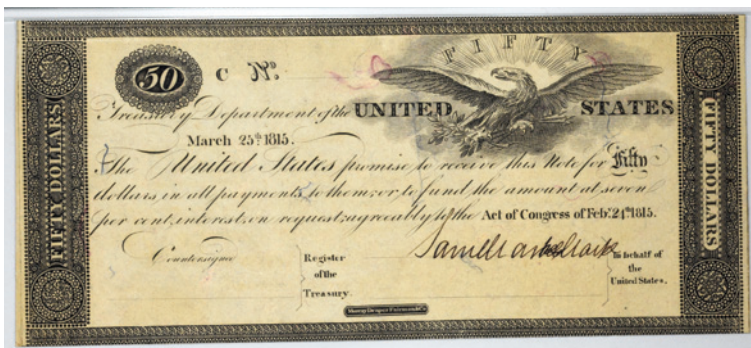 FIFTY
50 C No.
Treasury Department of the UNITED STATES
March 25th 1815.
The United States promise to receive this Note for Fifty
dollars in all payments to them; or to fund the amount at seven
per cent, interest, on request; agreeably to the Act of Congress of Feb.y 24th 1815.
Countersigned
Register
of the
Treasury.
In behalf of
the
United States.
FIFTY DOLLARS
FIFTY DOLLARS